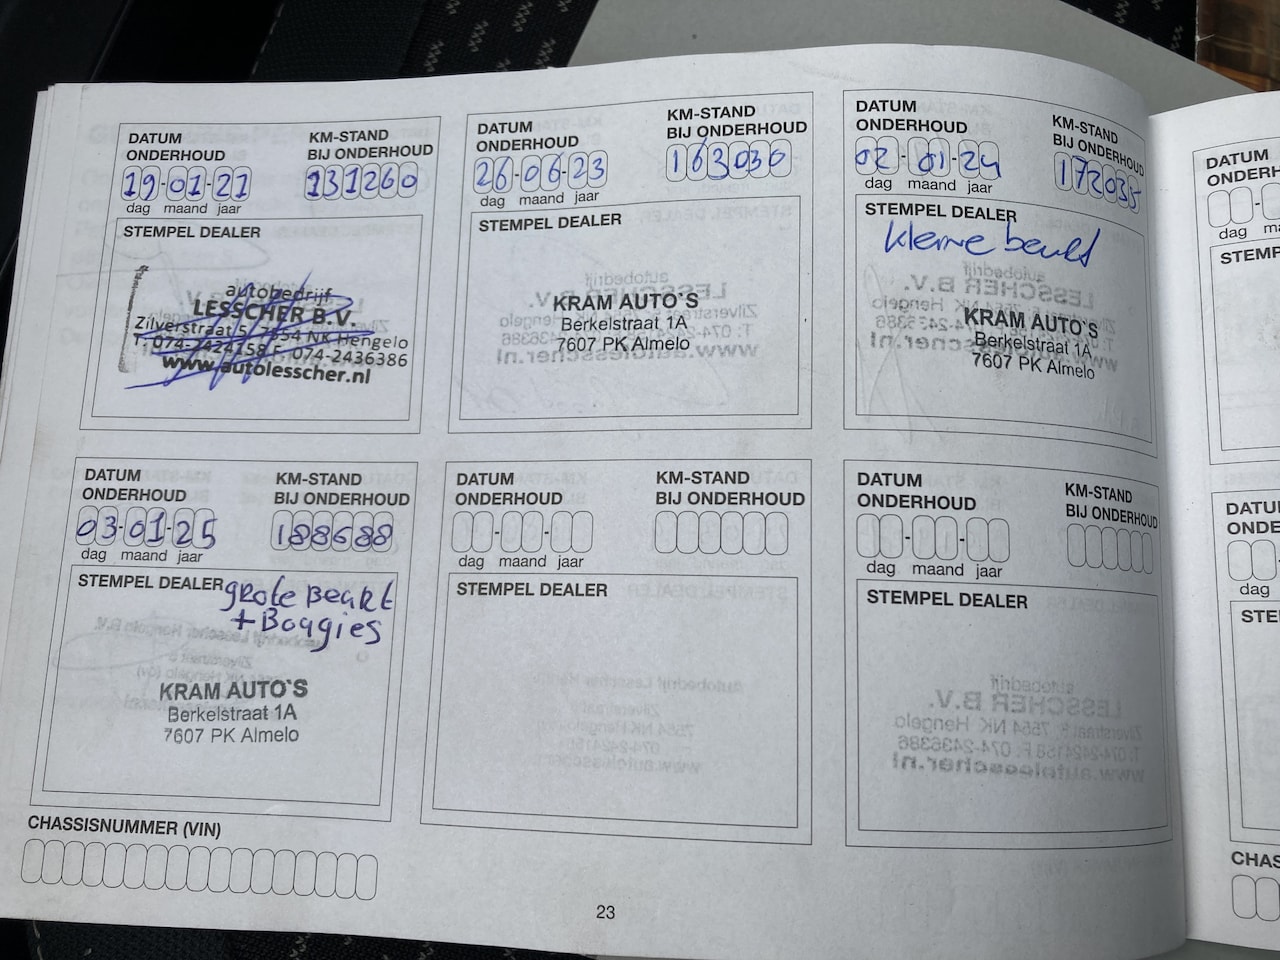 DATUM
ONDERHOUD
19-01-21
dag maand jaar
KM-STAND
BIJ ONDERHOUD
131260
STEMPEL DEALER
autobedrijf
LESSCHER B.V.
Zilverstraat 5, 7554 NK Hengelo
T. 074-2424158 F. 074-2436386
www.autolesscher.nl
DATUM
ONDERHOUD
26-06-23
dag maand jaar
KM-STAND
BIJ ONDERHOUD
163030
STEMPEL DEALER
KRAM AUTO`S
Berkelstraat 1A
7607 PK Almelo
DATUM
ONDERHOUD
02-01-24
dag maand jaar
KM-STAND
BIJ ONDERHOUD
172035
STEMPEL DEALER
kleine beurt
KRAM AUTO`S
Berkelstraat 1A
7607 PK Almelo
DATUM
ONDERHOUD
03-01-25
dag maand jaar
KM-STAND
BIJ ONDERHOUD
188688
STEMPEL DEALER
grote Beurt
+ Bougies
KRAM AUTO`S
Berkelstraat 1A
7607 PK Almelo
DATUM
ONDERHOUD
dag maand jaar
KM-STAND
BIJ ONDERHOUD
STEMPEL DEALER
DATUM
ONDERHOUD
dag maand jaar
KM-STAND
BIJ ONDERHOUD
STEMPEL DEALER
CHASSISNUMMER (VIN)
23
DATUM
dag
DATUM
dag